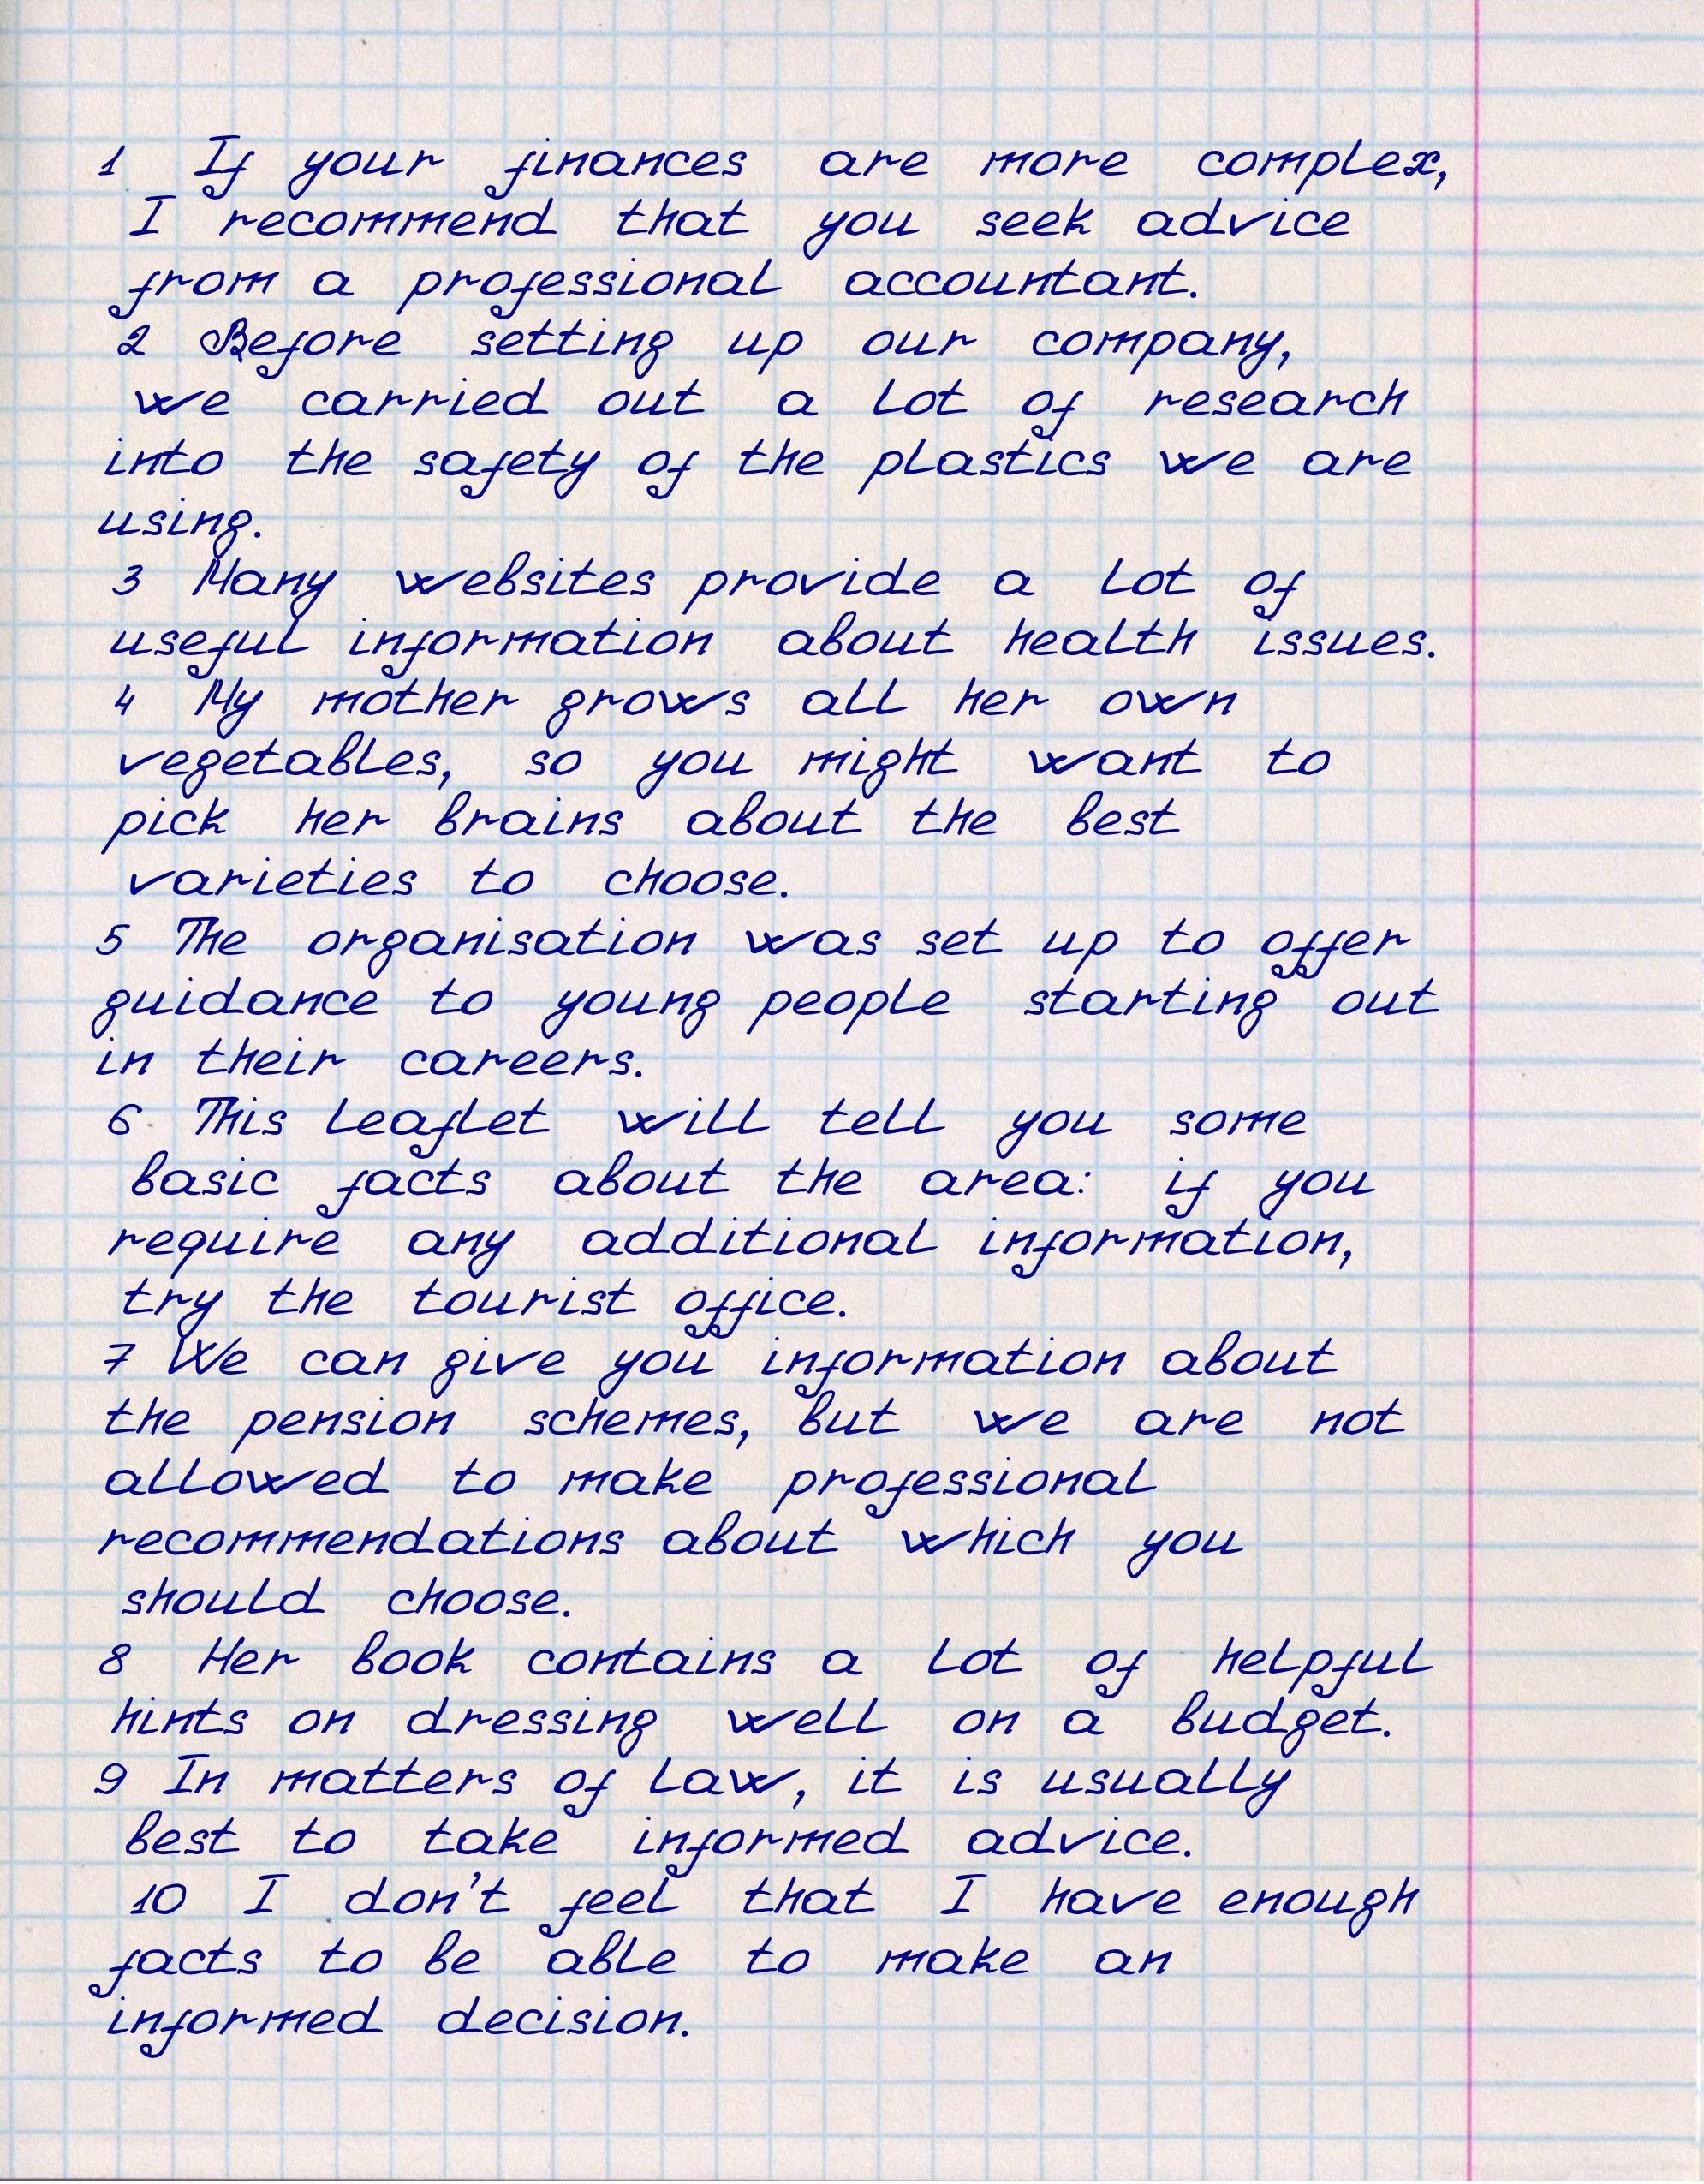 1 If your finances are more complex,
I recommend that you seek advice
from a professional accountant.
2 Before setting up our company,
we carried out a lot of research
into the safety of the plastics we are
using.
3 Many websites provide a lot of
useful information about health issues.
4 My mother grows all her own
vegetables, so you might want to
pick her brains about the best
varieties to choose.
5 The organisation was set up to offer
guidance to young people starting out
in their careers.
6 This leaflet will tell you some
basic facts about the area: if you
require any additional information,
try the tourist office.
7 We can give you information about
the pension schemes, but we are not
allowed to make professional
recommendations about which you
should choose.
8 Her book contains a lot of helpful
hints on dressing well on a budget.
9 In matters of law, it is usually
best to take informed advice.
10 I don't feel that I have enough
facts to be able to make an
informed decision.